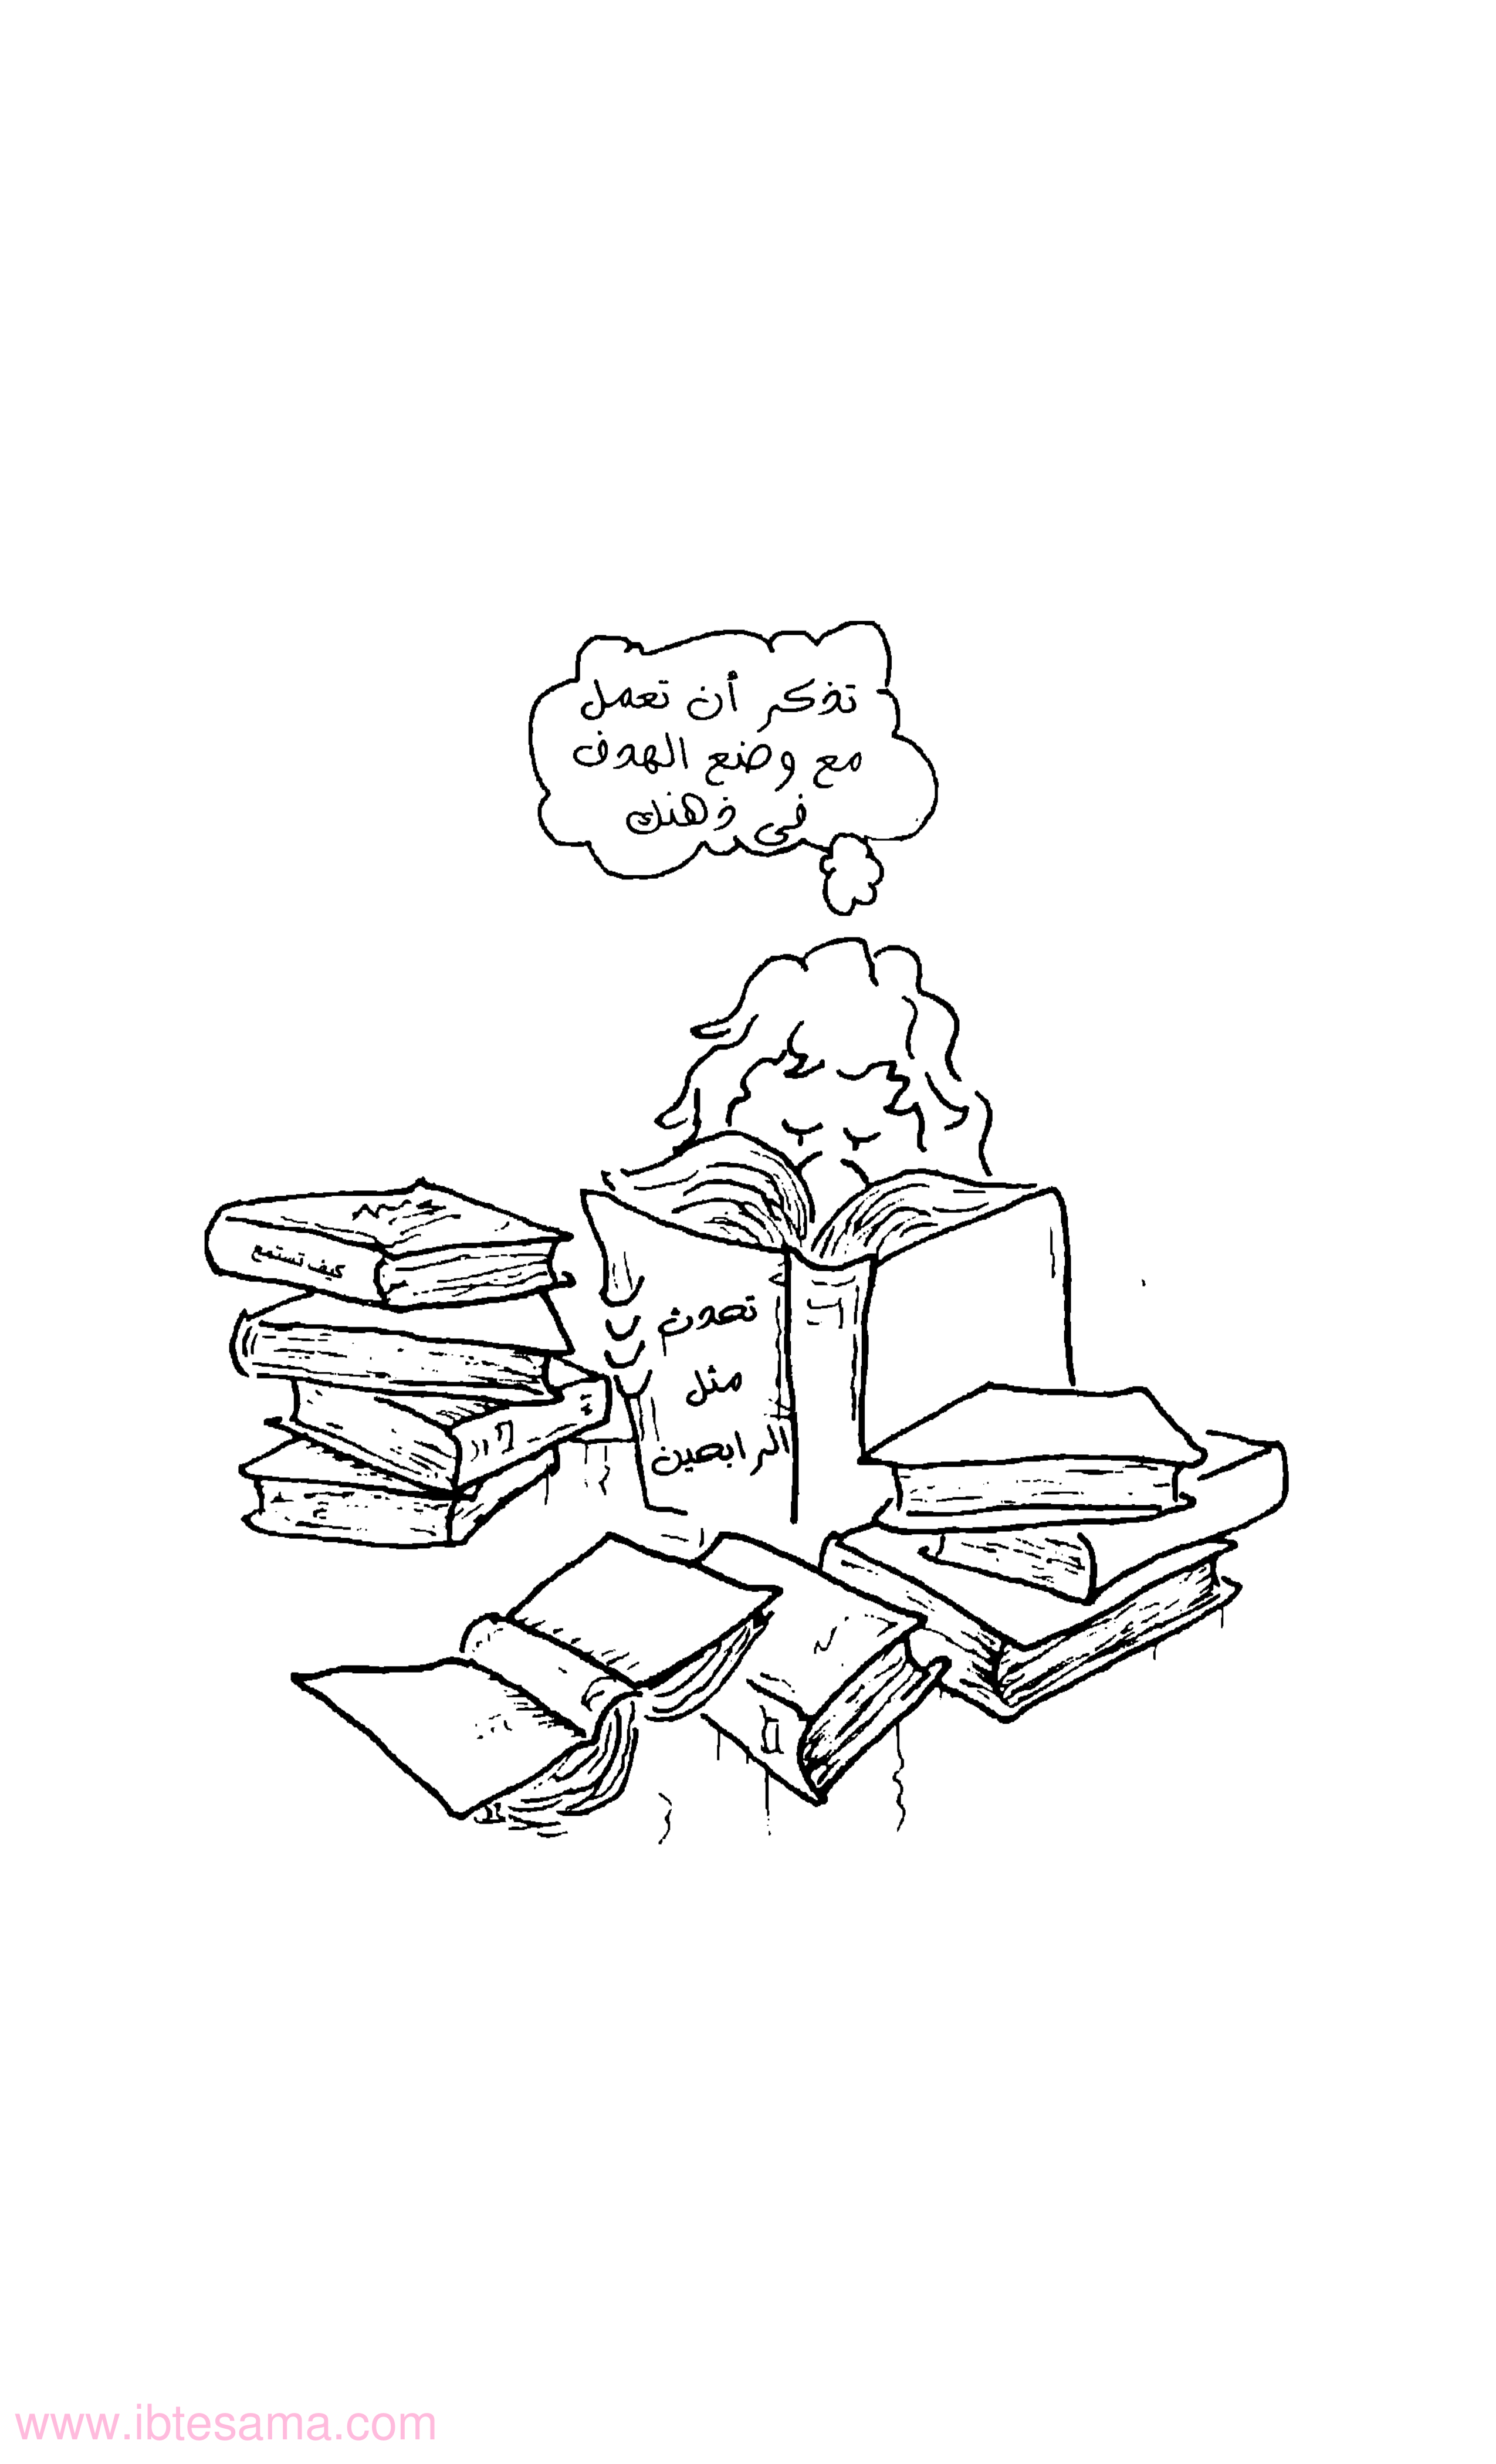 تذكر أن تعمل
مع وضع الهدف
في ذهنك
كيف تستمع
تحدث
مثل
الرابحين
www.ibtesama.com